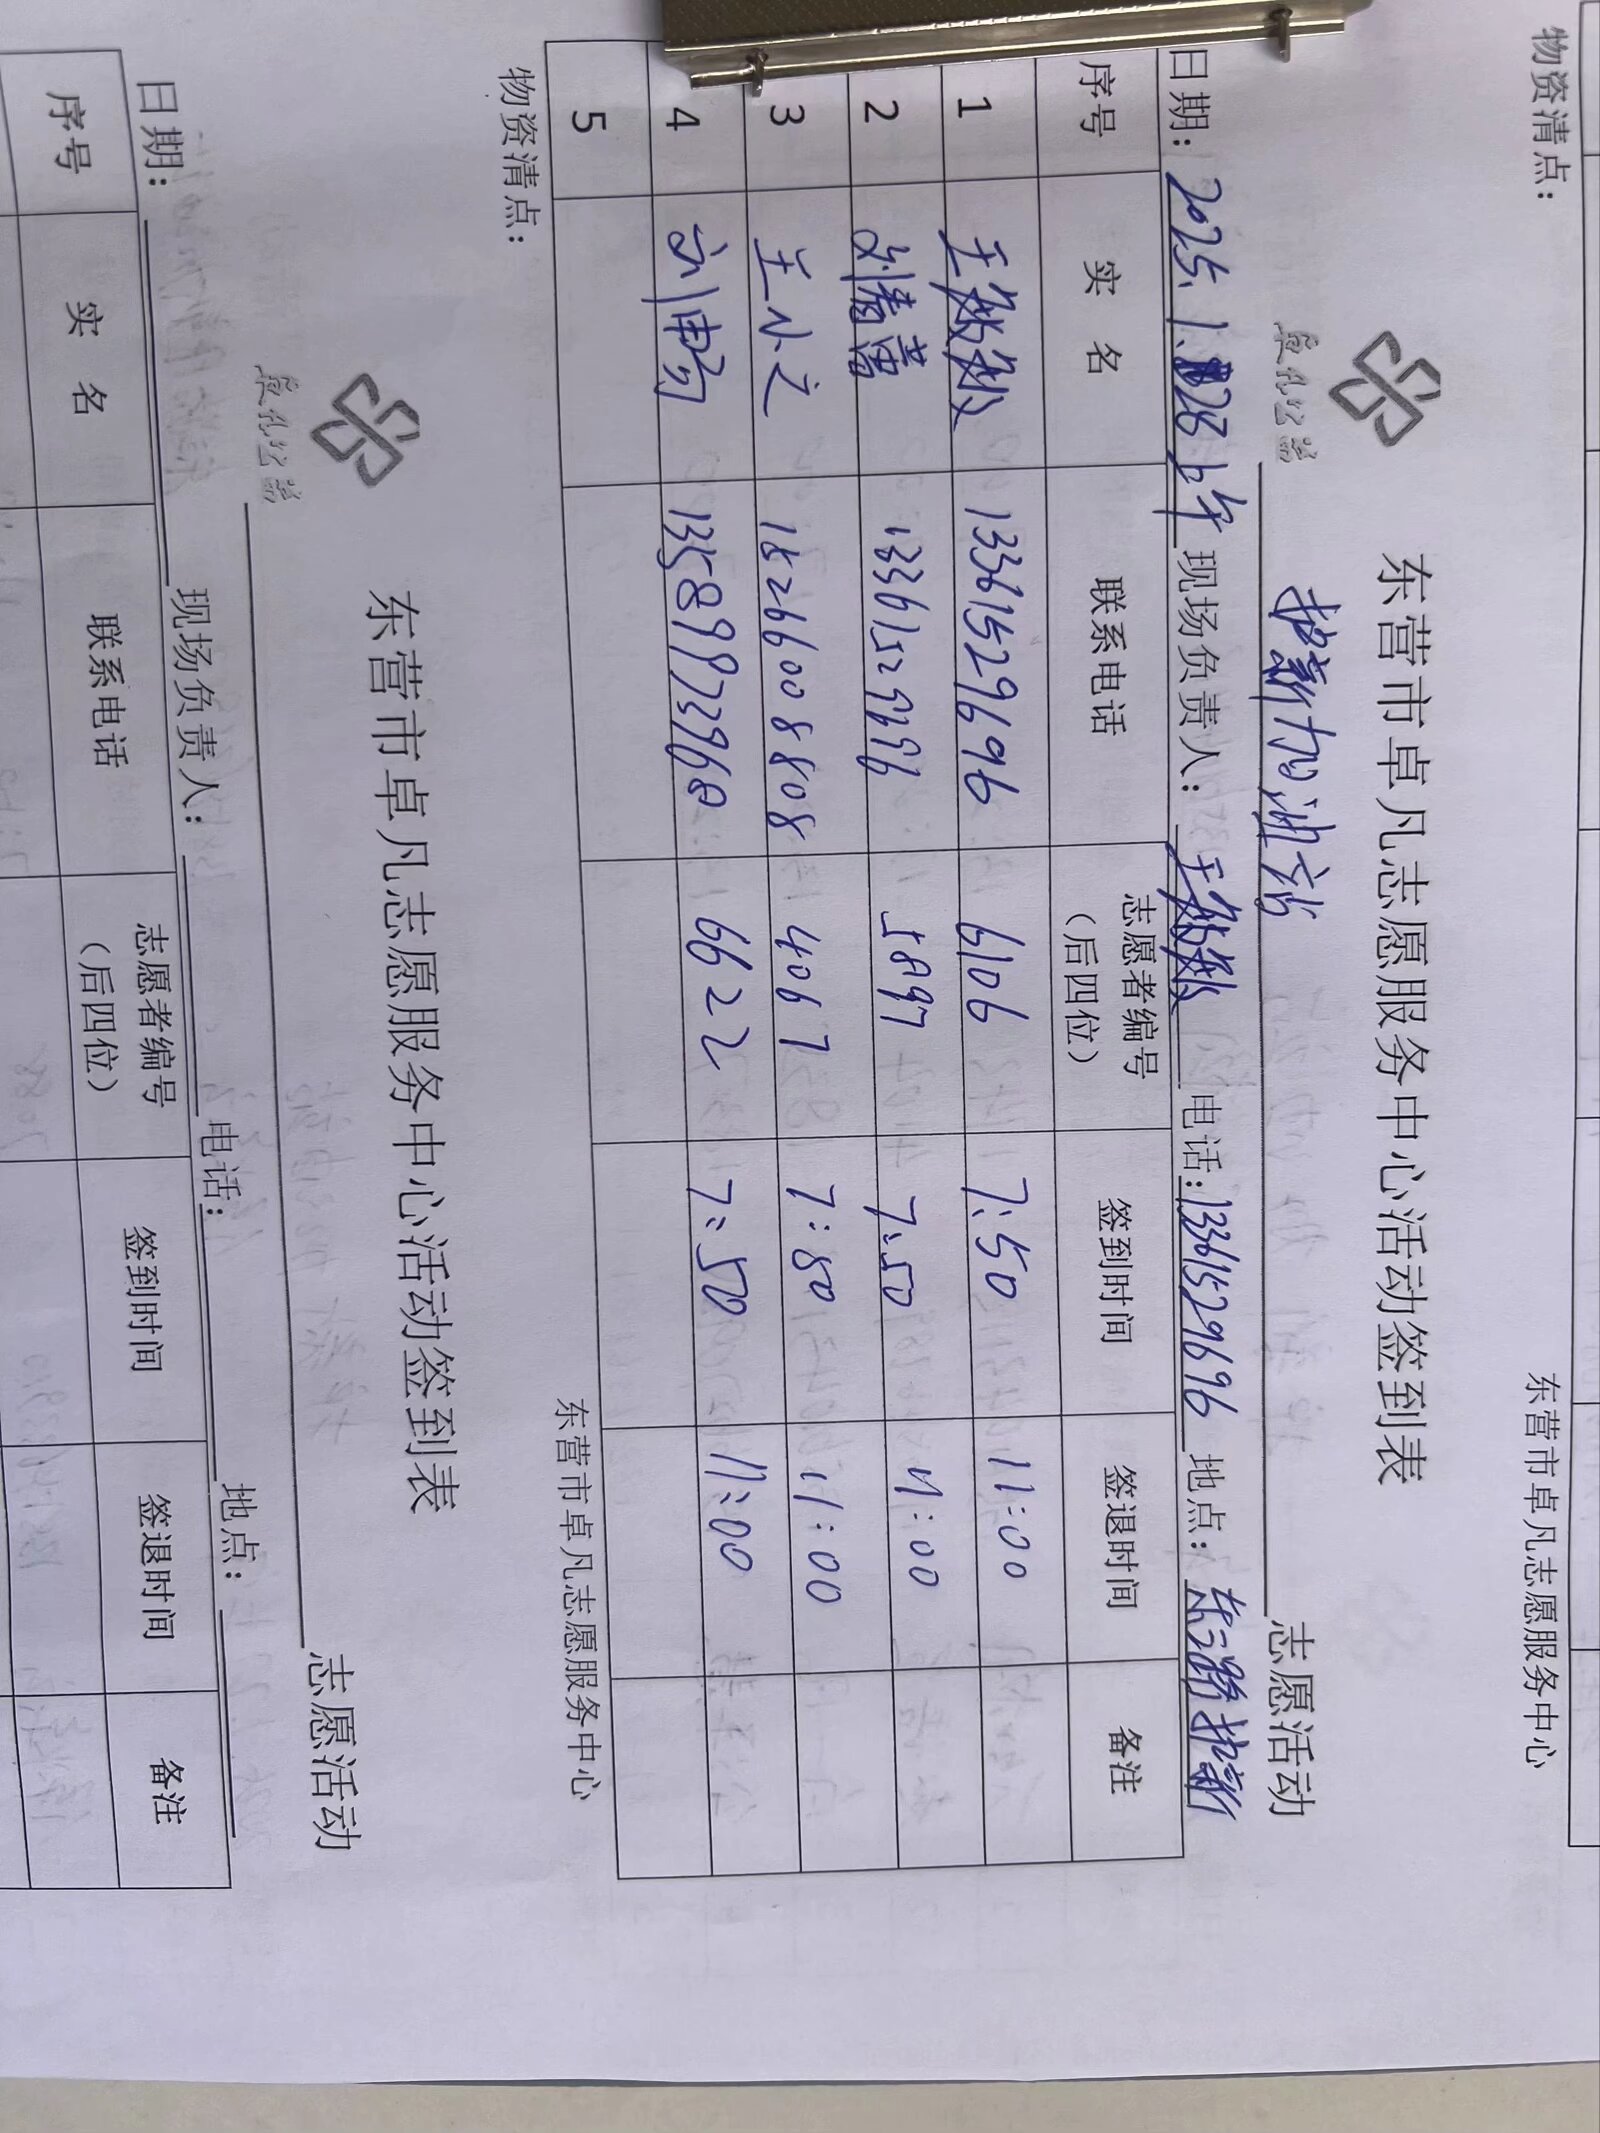 物资清点：
东营市卓凡志愿服务中心
东营市卓凡志愿服务中心活动签到表
卓凡公益
护新加油站 志愿活动
日期：2025.1.28上午 现场负责人：王 电话：13361529696 地点：东三路护新
序号 实 名 联系电话 志愿者编号（后四位） 签到时间 签退时间 备注
1 王 13361529696 6106 7:50 11:00
2 刘清 13361529696 5897 7:50 11:00
3 王小文 18266008808 4067 7:50 11:00
4 刘 13589973968 6622 7:50 11:00
5
物资清点：
东营市卓凡志愿服务中心
东营市卓凡志愿服务中心活动签到表
卓凡公益
志愿活动
日期： 现场负责人： 电话： 地点：
序号 实 名 联系电话 志愿者编号（后四位） 签到时间 签退时间 备注